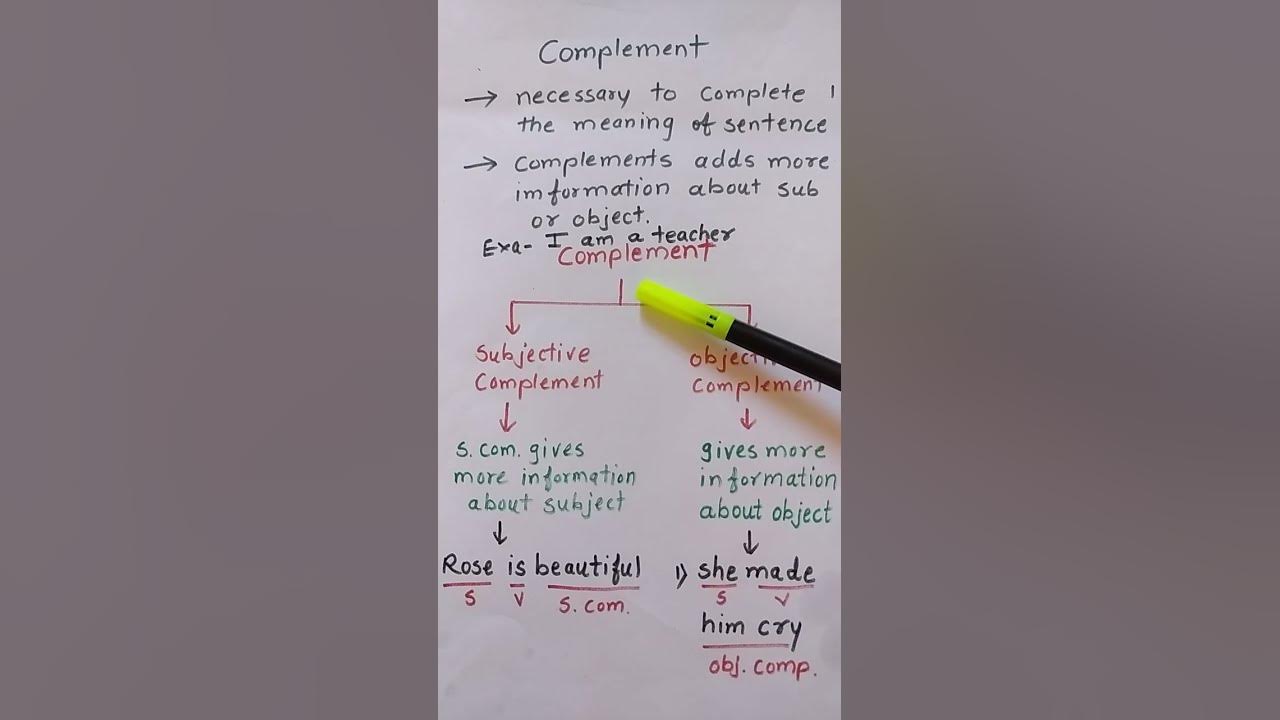 Complement
→ necessary to complete
the meaning of sentence
→ Complements adds more
imformation about sub
or object.
Exa- I am a teacher
Complement
Subjective
Complement
Complement
S. com. gives
more information
about subject
gives more
information
about object
Rose is beautiful
S V S. com.
1) she made
S V
him cry
obj. comp.